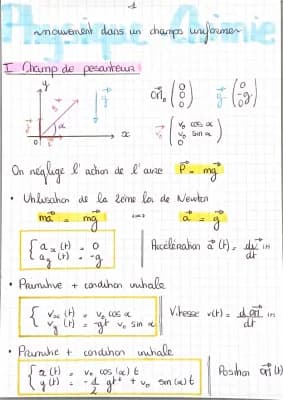 1
Physique Chimie
mouvement dans un champs uniforme
I Champ de pesanteur
y
g
x
O
α
OM₀ (0 0 0) g (0 -g 0)
v₀ (v₀ cos α v₀ sin α 0)
On néglige l'action de l'air P = mg
• Utilisation de la 2ème loi de Newton
ma = mg a = g
{ ax(t) = 0
ay(t) = -g
Accélération a(t) = dv/dt
• Primitive + condition initiale
{ vx(t) = v₀ cos α
vy(t) = -gt v₀ sin α
Vitesse v(t) = dOM/dt
• Primitive + condition initiale
{ x(t) = v₀ cos(α) t
y(t) = -1/2 gt² + v₀ sin(α) t
Position OM(t)